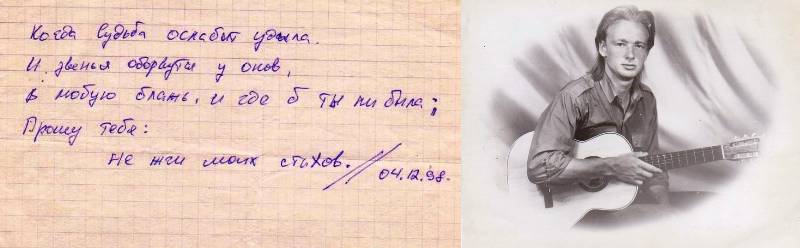 Когда Судьба ослабит удила.
И звенья оборвутся у оков,
в любую блажь, и где б ты ни была;
Прошу тебя:
Не жги моих стихов. // 04.12.98.